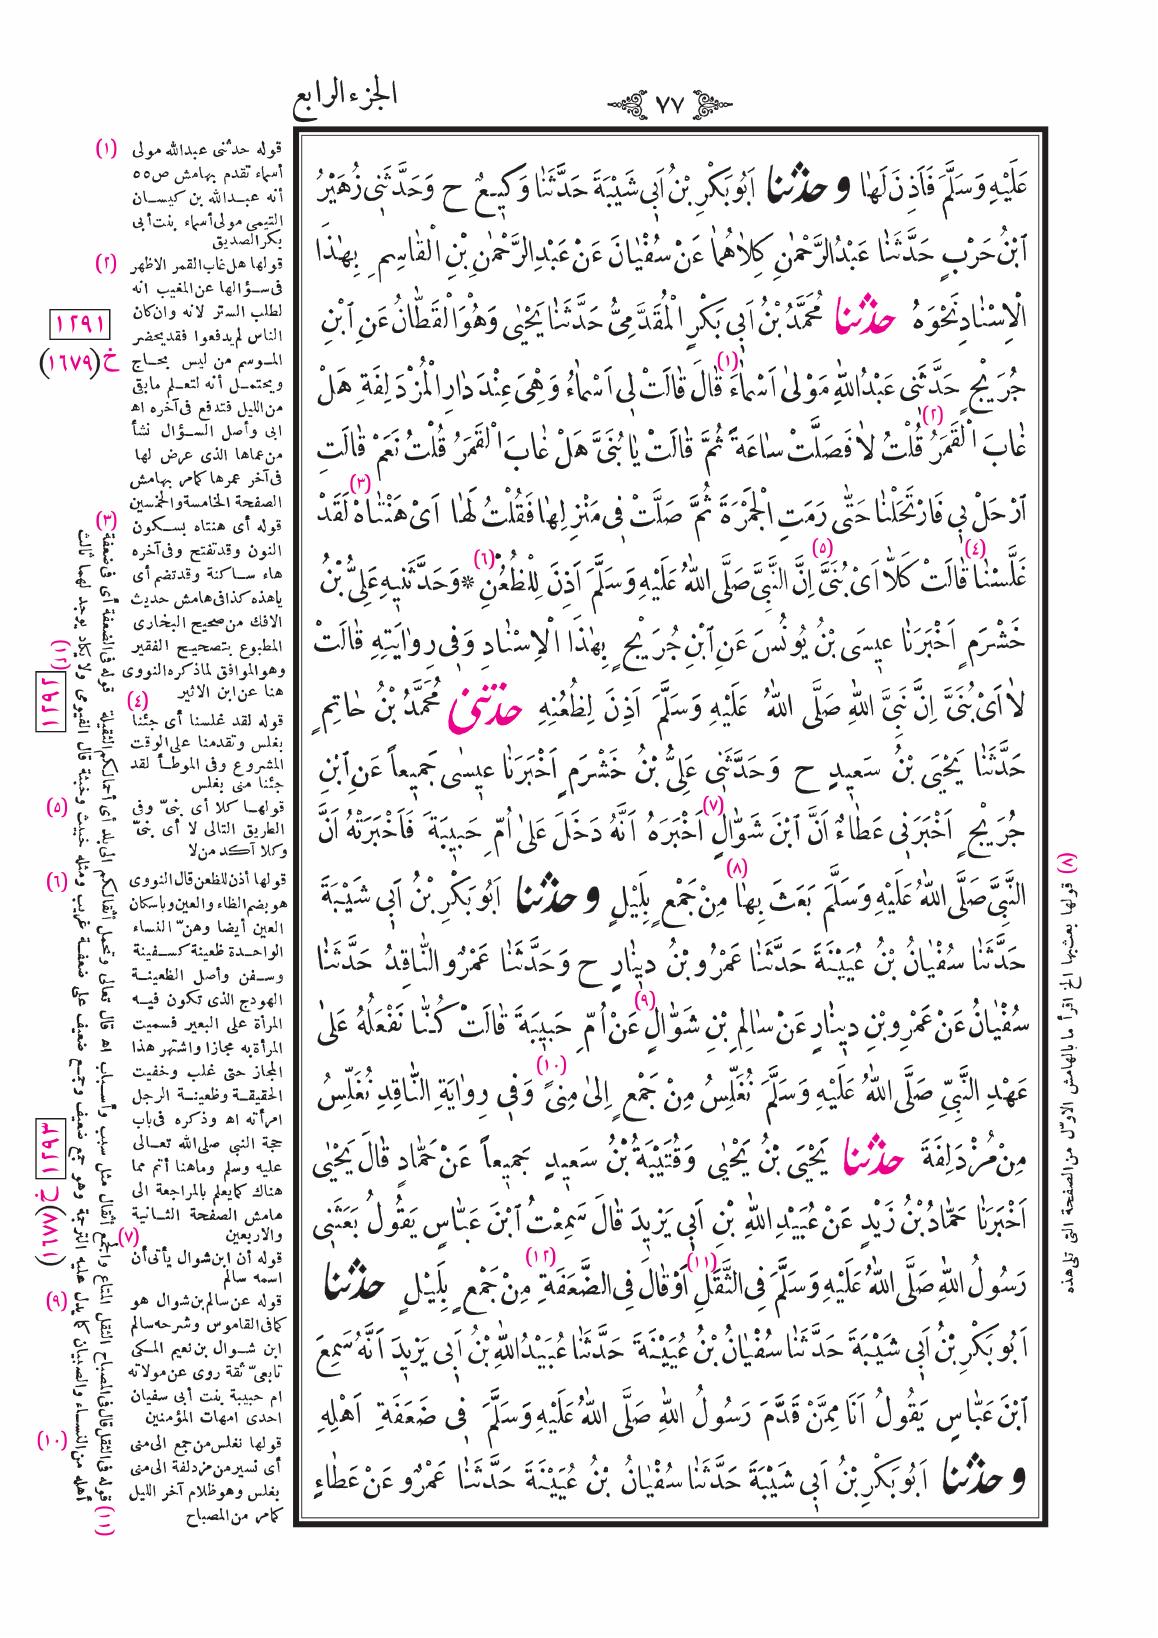 الجزء الرابع
٧٧
عَلَيْهِ وَسَلَّمَ فَأَذِنَ لَهَا وحدثنا اَبُو بَكْرِ بْنُ اَبِي شَيْبَةَ حَدَّثَنَا وَكِيعٌ ح وَحَدَّثَنِي زُهَيْرُ
ابْنُ حَرْبٍ حَدَّثَنَا عَبْدُ الرَّحْمٰنِ كِلَاهُمَا عَنْ سُفْيَانَ عَنْ عَبْدِ الرَّحْمٰنِ بْنِ الْقَاسِمِ بِهٰذَا
الْاِسْنَادِ نَحْوَهُ حدثنا مُحَمَّدُ بْنُ اَبِي بَكْرٍ الْمُقَدَّمِيُّ حَدَّثَنَا يَحْيٰى وَهُوَ الْقَطَّانُ عَنِ ابْنِ
جُرَيْجٍ حَدَّثَنِي عَبْدُ اللّٰهِ مَوْلٰى اَسْمَاءَ (١) قَالَ قَالَتْ لِي اَسْمَاءُ وَهِيَ عِنْدَ دَارِ الْمُزْدَلِفَةِ هَلْ
غَابَ الْقَمَرُ (٢) قُلْتُ لَا فَصَلَّتْ سَاعَةً ثُمَّ قَالَتْ يَا بُنَيَّ هَلْ غَابَ الْقَمَرُ قُلْتُ نَعَمْ قَالَتِ
ارْحَلْ بِي فَارْتَحَلْنَا حَتّٰى رَمَتِ الْجَمْرَةَ ثُمَّ صَلَّتْ فِي مَنْزِلِهَا فَقُلْتُ لَهَا اَيْ هَنْتَاهْ (٣) لَقَدْ
غَلَّسْنَا (٤) قَالَتْ كَلَّا اَيْ بُنَيَّ (٥) اِنَّ النَّبِيَّ صَلَّى اللّٰهُ عَلَيْهِ وَسَلَّمَ اَذِنَ لِلظُّعُنِ (٦) * وَحَدَّثَنِيهِ عَلِيُّ بْنُ
خَشْرَمٍ اَخْبَرَنَا عِيسَى بْنُ يُونُسَ عَنِ ابْنِ جُرَيْجٍ بِهٰذَا الْاِسْنَادِ وَفِي رِوَايَتِهِ قَالَتْ
لَا اَيْ بُنَيَّ اِنَّ نَبِيَّ اللّٰهِ صَلَّى اللّٰهُ عَلَيْهِ وَسَلَّمَ اَذِنَ لِظُعُنِهِ حدثني مُحَمَّدُ بْنُ حَاتِمٍ
حَدَّثَنَا يَحْيَى بْنُ سَعِيدٍ ح وَحَدَّثَنِي عَلِيُّ بْنُ خَشْرَمٍ اَخْبَرَنَا عِيسٰى جَمِيعاً عَنِ ابْنِ
جُرَيْجٍ اَخْبَرَنِي عَطَاءٌ اَنَّ ابْنَ شَوَّالٍ (٧) اَخْبَرَهُ اَنَّهُ دَخَلَ عَلٰى اُمِّ حَبِيبَةَ فَاَخْبَرَتْهُ اَنَّ
النَّبِيَّ صَلَّى اللّٰهُ عَلَيْهِ وَسَلَّمَ بَعَثَ بِهَا (٨) مِنْ جَمْعٍ بِلَيْلٍ وحدثنا اَبُو بَكْرِ بْنُ اَبِي شَيْبَةَ
حَدَّثَنَا سُفْيَانُ بْنُ عُيَيْنَةَ حَدَّثَنَا عَمْرُو بْنُ دِينَارٍ ح وَحَدَّثَنَا عَمْرٌو النَّاقِدُ حَدَّثَنَا
سُفْيَانُ عَنْ عَمْرِو بْنِ دِينَارٍ عَنْ سَالِمِ بْنِ شَوَّالٍ (٩) عَنْ اُمِّ حَبِيبَةَ قَالَتْ كُنَّا نَفْعَلُهُ عَلٰى
عَهْدِ النَّبِيِّ صَلَّى اللّٰهُ عَلَيْهِ وَسَلَّمَ نُغَلِّسُ مِنْ جَمْعٍ اِلٰى مِنًى (١٠) وَفِي رِوَايَةِ النَّاقِدِ نُغَلِّسُ
مِنْ مُزْدَلِفَةَ حدثنا يَحْيَى بْنُ يَحْيٰى وَقُتَيْبَةُ بْنُ سَعِيدٍ جَمِيعاً عَنْ حَمَّادٍ قَالَ يَحْيٰى
اَخْبَرَنَا حَمَّادُ بْنُ زَيْدٍ عَنْ عُبَيْدِ اللّٰهِ بْنِ اَبِي يَزِيدَ قَالَ سَمِعْتُ ابْنَ عَبَّاسٍ يَقُولُ بَعَثَنِي
رَسُولُ اللّٰهِ صَلَّى اللّٰهُ عَلَيْهِ وَسَلَّمَ فِي الثَّقَلِ (١١) اَوْ قَالَ فِي الضَّعَفَةِ (١٢) مِنْ جَمْعٍ بِلَيْلٍ حدثنا
اَبُو بَكْرِ بْنُ اَبِي شَيْبَةَ حَدَّثَنَا سُفْيَانُ بْنُ عُيَيْنَةَ حَدَّثَنَا عُبَيْدُ اللّٰهِ بْنُ اَبِي يَزِيدَ اَنَّهُ سَمِعَ
ابْنَ عَبَّاسٍ يَقُولُ اَنَا مِمَّنْ قَدَّمَ رَسُولُ اللّٰهِ صَلَّى اللّٰهُ عَلَيْهِ وَسَلَّمَ فِي ضَعَفَةِ اَهْلِهِ
وحدثنا اَبُو بَكْرِ بْنُ اَبِي شَيْبَةَ حَدَّثَنَا سُفْيَانُ بْنُ عُيَيْنَةَ حَدَّثَنَا عَمْرٌو عَنْ عَطَاءٍ
(١) قوله حدثنى عبدالله مولى
أسماء تقدم بهامش ص٥٥
أنه عبدالله بن كيسان
التيمى مولى أسماء بنت أبى
بكر الصديق
(٢) قولها هل غاب القمر الاظهر
فى سؤالها عن المغيب انه
لطلب الستر لانه وان كان
الناس لم يدفعوا فقد يحضر
الموسم من ليس بحاج
ويحتمل أنه لتعلم ما بقى
من الليل فتدفع فى آخره اه
ابى وأصل السؤال نشأ
من عماها الذى عرض لها
فى آخر عمرها كما مر بهامش
الصفحة الخامسة والخمسين
(٣) قوله أى هنتاه بسكون
النون وقد تفتح وفى آخره
هاء ساكنة وقد تضم أى
ياهذه كذا فى هامش حديث
الافك من صحيح البخارى
المطبوع بتصحيح الفقير
وهو الموافق لما ذكره النووى
هنا عن ابن الاثير
(٤) قوله لقد غلسنا أى جئنا
بغلس وتقدمنا على الوقت
المشروع وفى الموطأ لقد
جئنا منى بغلس
(٥) قولها كلا أى بنىّ وفى
الطريق التالى لا أى بنىّ
وكلا آكد من لا
(٦) قولها أذن للظعن قال النووى
هو بضم الظاء والعين وباسكان
العين أيضا وهنّ النساء
الواحدة ظعينة كسفينة
وسفن وأصل الظعينة
الهودج الذى تكون فيه
المرأة على البعير فسميت
المرأة به مجازا واشتهر هذا
المجاز حتى غلب وخفيت
الحقيقة وظعينة الرجل
امرأته اه وذكره فى باب
حجة النبى صلى الله تعالى
عليه وسلم وماهنا أتم مما
هناك كما يعلم بالمراجعة الى
هامش الصفحة الثانية
والاربعين
(٧) قوله أن ابن شوال يأتى أن
اسمه سالم
(٩) قوله عن سالم بن شوال هو
كما فى القاموس وشرحه سالم
ابن شوال بن نعيم المكى
تابعىّ ثقة روى عن مولاته
ام حبيبة بنت أبى سفيان
احدى امهات المؤمنين
(١٠) قولها نغلس من جمع الى منى
أى نسير من مزدلفة الى منى
بغلس وهو ظلام آخر الليل
كما مر من المصباح
(١١) قوله فى الثقل قال فى المصباح الثقل المتاع والجمع أثقال مثل سبب وأسباب اه قال تعالى وتحمل أثقالكم الى بلد أى أحمالكم الثقيلة (١٢) قوله فى الضعفة أى فى ضعفة
أهله من النساء والصبيان كما يدل عليه الترجمة وهو جمع ضعيف وجمع ضعيف على ضعفة غريب ومثله خبيث وخبثة قال الفيومى ولا يكاد يوجد لهما ثالث
(٨) قولها بعث بها الخ اقرأ ما بالهامش الاوّل من الصفحة التى تلى هذه
١٢٩١
خ (١٦٧٩)
١٢٩٢
١٢٩٣
خ (١٦٧٨)